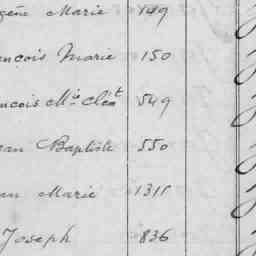 gène Marie 149
nçois Marie 150
nçois Mie Clét 549
ean Baptiste 550
an Marie 1315
Joseph 836